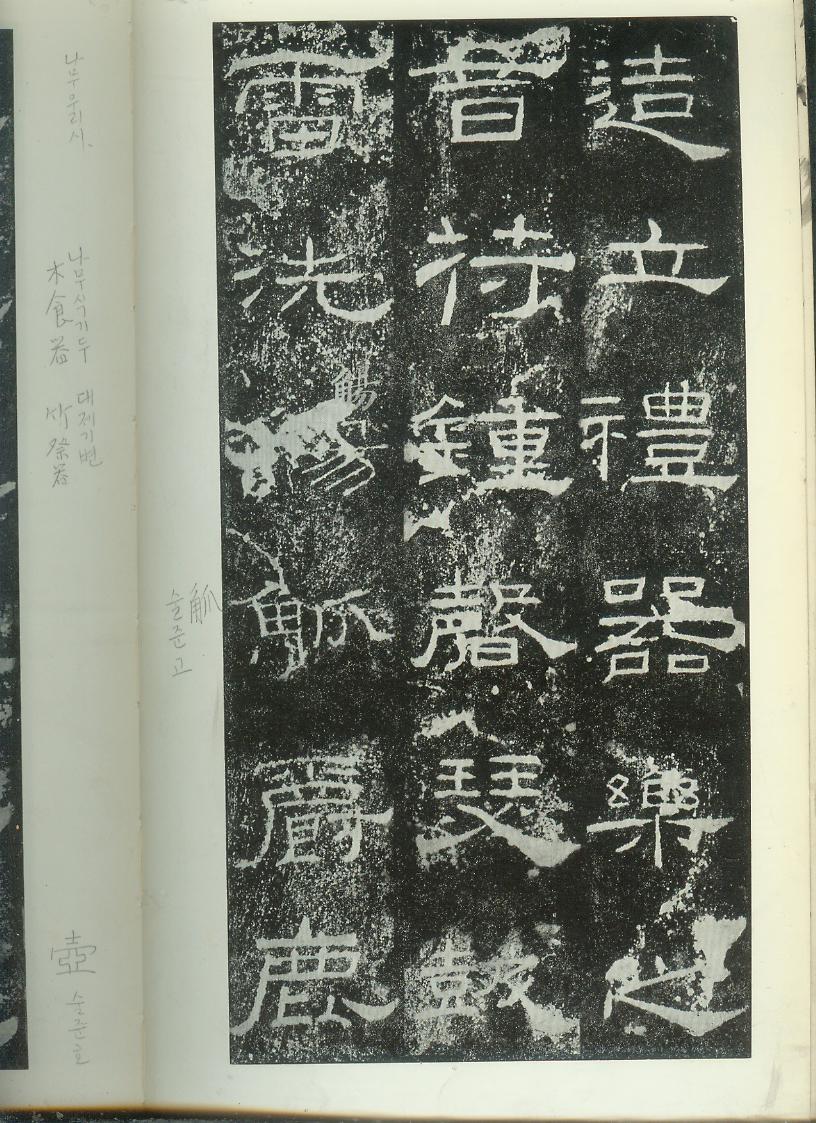 造立禮器樂之
音符鍾磬瑟鼓
雷洗觴觚爵鹿
觴
觚
술준고
나무우리시
나무식기두 대제기변
木食器 竹祭器
壺 술준호